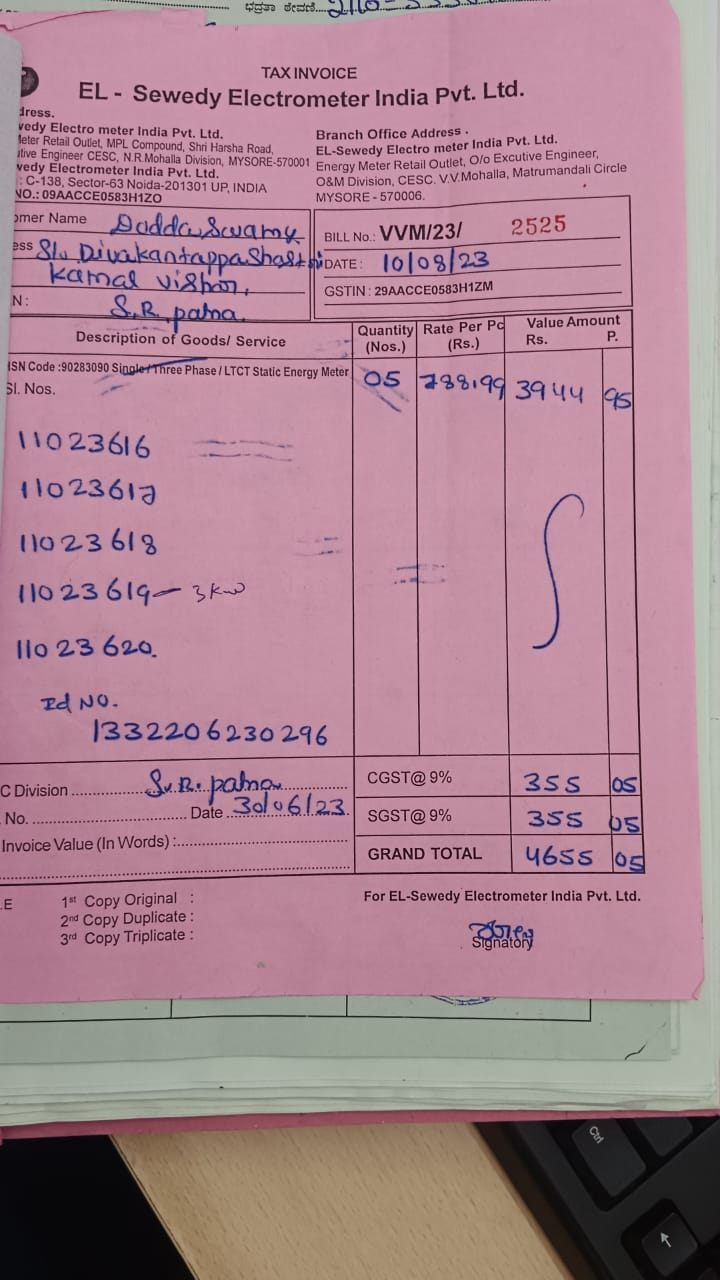 ಭದ್ರತಾ ಠೇವಣಿ
TAX INVOICE
EL - Sewedy Electrometer India Pvt. Ltd.
dress.
vedy Electro meter India Pvt. Ltd.
Meter Retail Outlet, MPL Compound, Shri Harsha Road,
tive Engineer CESC, N.R.Mohalla Division, MYSORE-570001
vedy Electrometer India Pvt. Ltd.
: C-138, Sector-63 Noida-201301 UP, INDIA
NO.: 09AACCE0583H1ZO
Branch Office Address .
EL-Sewedy Electro meter India Pvt. Ltd.
Energy Meter Retail Outlet, O/o Excutive Engineer,
O&M Division, CESC. V.V.Mohalla, Matrumandali Circle
MYSORE - 570006.
omer Name Doddaswamy
ess S/o Divakantappashastri
kamal vishon,
N: S.R. patna.
BILL No.: VVM/23/ 2525
DATE: 10/08/23
GSTIN : 29AACCE0583H1ZM
Description of Goods/ Service
Quantity (Nos.)
Rate Per Pc (Rs.)
Value Amount
Rs. P.
ISN Code :90283090 Single/Three Phase / LTCT Static Energy Meter 05 788.99 3944 95
Sl. Nos.
11023616
11023617
11023618
11023619 - 3kw
11023620.
Id NO.
1332206230296
C Division S.R. patna
No. Date 30/06/23
Invoice Value (In Words) :
CGST@ 9% 355 05
SGST@ 9% 355 05
GRAND TOTAL 4655 05
E 1st Copy Original :
2nd Copy Duplicate :
3rd Copy Triplicate :
For EL-Sewedy Electrometer India Pvt. Ltd.
Signatory
Ctrl